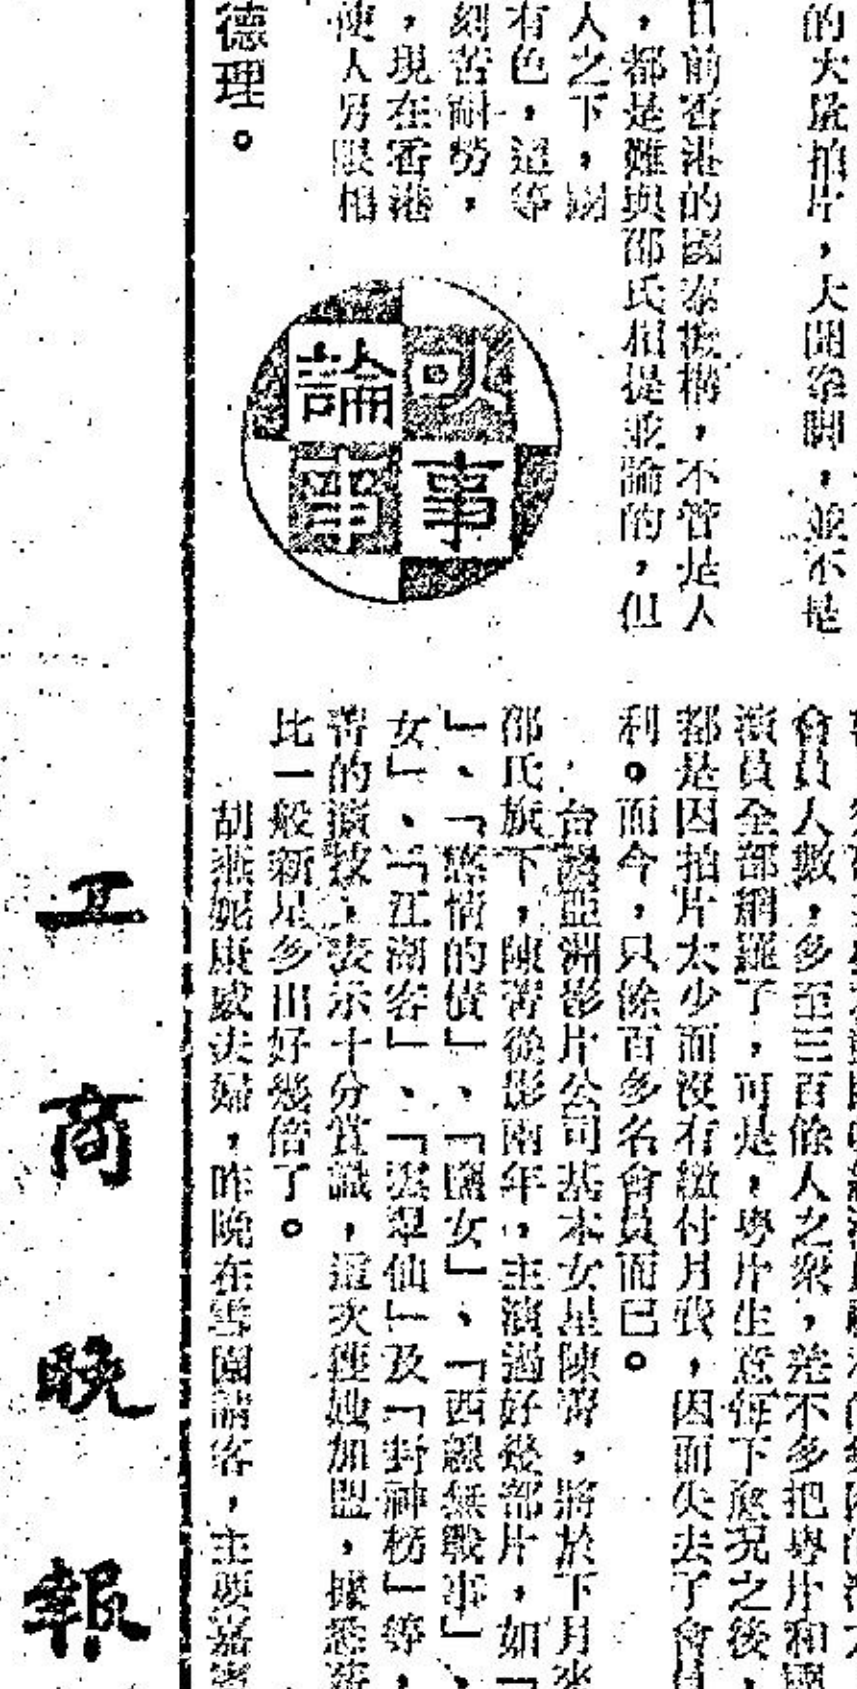 的大量拍片，大開拳脚，並不是
目前香港的國泰機構，不管是人
，都是難與邵氏相提並論的，但
人之下，
有色，這等
刻苦耐勞，
，現在香港
使人另眼相
德理。
以事
論事
會員人數，多至三百餘人之衆，差不多把粤片和國
演員全部網羅了，可是，粤片生意每下愈况之後，
都是因拍片太少而沒有繳付月費，因而失去了會員
利。而今，只餘百多名會員而已。
台灣亞洲影片公司基本女星陳菁，將於下月來
邵氏旗下，陳菁從影兩年，主演過好幾部片，如「
」、「感情的債」、「鹽女」、「西線無戰事」、
女」、「江湖客」、「雲翠仙」及「封神榜」等，
菁的演技，表示十分賞識，這次邀她加盟，據悉薪
比一般新星多出好幾倍了。
胡燕妮康威夫婦，昨晚在雪園請客，主要嘉賓
工商晚報